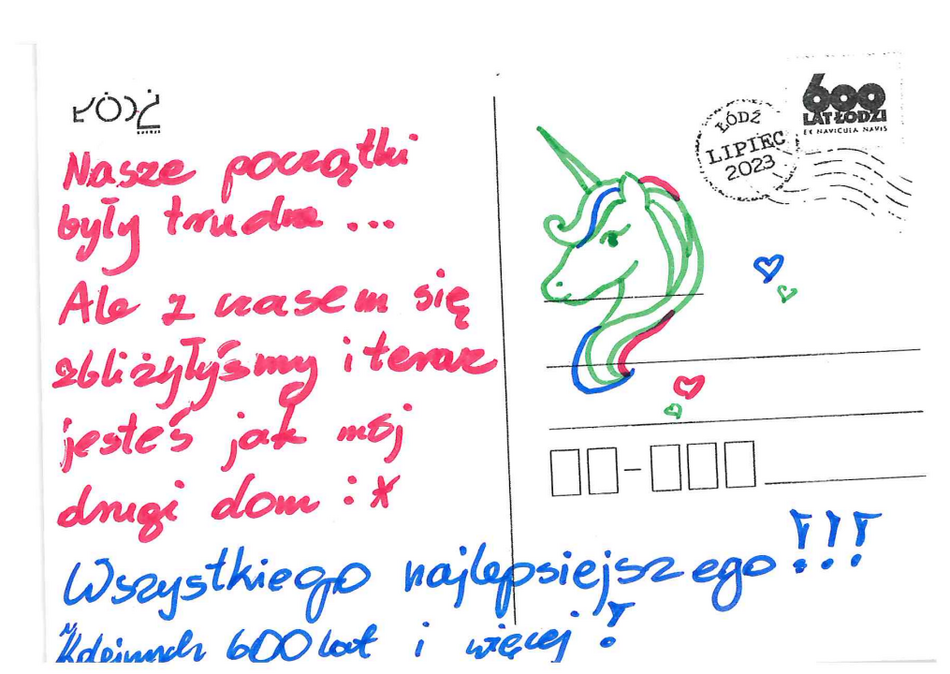 ŁÓDŹ
Nasze początki
były trudne ...
Ale z czasem się
zbliżyłyśmy i teraz
jesteś jak mój
drugi dom :*
Wszystkiego najlepsiejszego!!!
Kolejnych 600 lat i więcej!
ŁÓDŹ
LIPIEC
2023
600
LAT ŁODZI
EX NAVICULA NAVIS